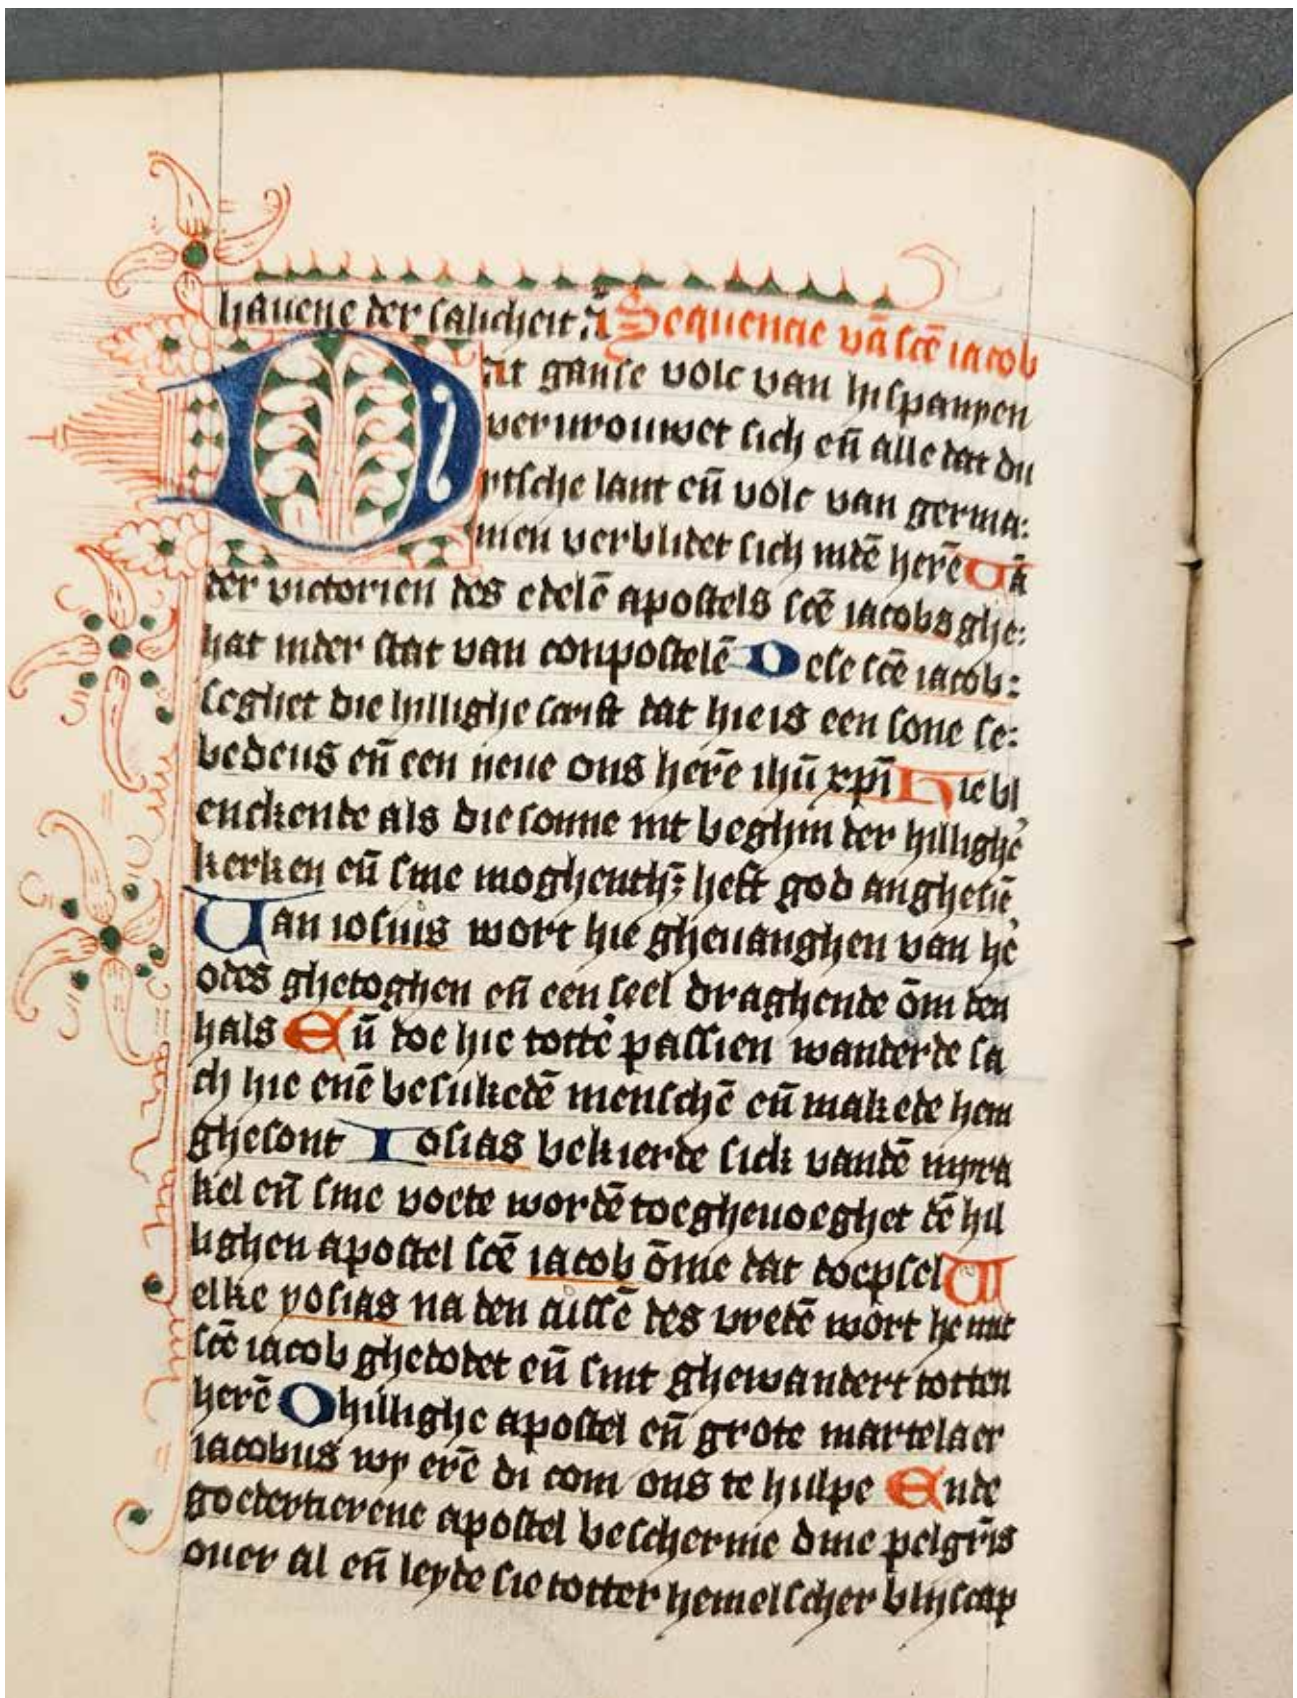 hauene der salicheit Sequencie vā sce̅ iacob
Dat ganse volc van hispanyen
vervrouwet sich en̅ alle dat du
ytsche lant en̅ volc van germa:
nien verblidet sich indē herē Uā
der victorien des edelē apostels sce̅ iacobs ghe:
hat inder stat van conpostelē Dese sce̅ iacob:
seghet die hillighe scrift dat hie is een sone se:
bedeus en̅ een neue ons herē ihū xpi̅ Hie bl
enckende als die sonne int beghin der hillighē
kerken en̅ sine moghenth: heft god anghesiē
Uan iosuis wort hie gheuanghen van he
odes ghetoghen en̅ een seel draghende ōm den
hals En̅ doe hie tottē passien wanderde sa
ch hie enē besukedē menschē en̅ makede hem
ghesont Iosias bekierde sick vandē myra
kel en̅ sine voete wordē toegheuoeghet dē hil
lighen apostel sce̅ iacob ōme dat doepsel W
elke yosias na den des vredē wort he mit
sce̅ iacob ghedodet en̅ sint ghewandert totten
herē O hillighe apostel en̅ grote martelaer
iacobus wy erē di com ons te hulpe Ende
goedertierene apostel bescherme dine pelgri̅s
ouer al en̅ leyde sie totter hemelscher blijscap